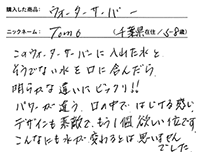 購入した商品: ウォーターサーバー
ニックネーム: Tomo (千葉県在住/58歳)
このウォーターサーバーに入れた水と、
そうでない水を口に含んだら、
明らかな違いにビックリ!!
パワーが違う、口の中ではじける感じ、
デザインも素敵で、もう1個欲しい位です。
こんなにも水が変わるとは思いません
でした。